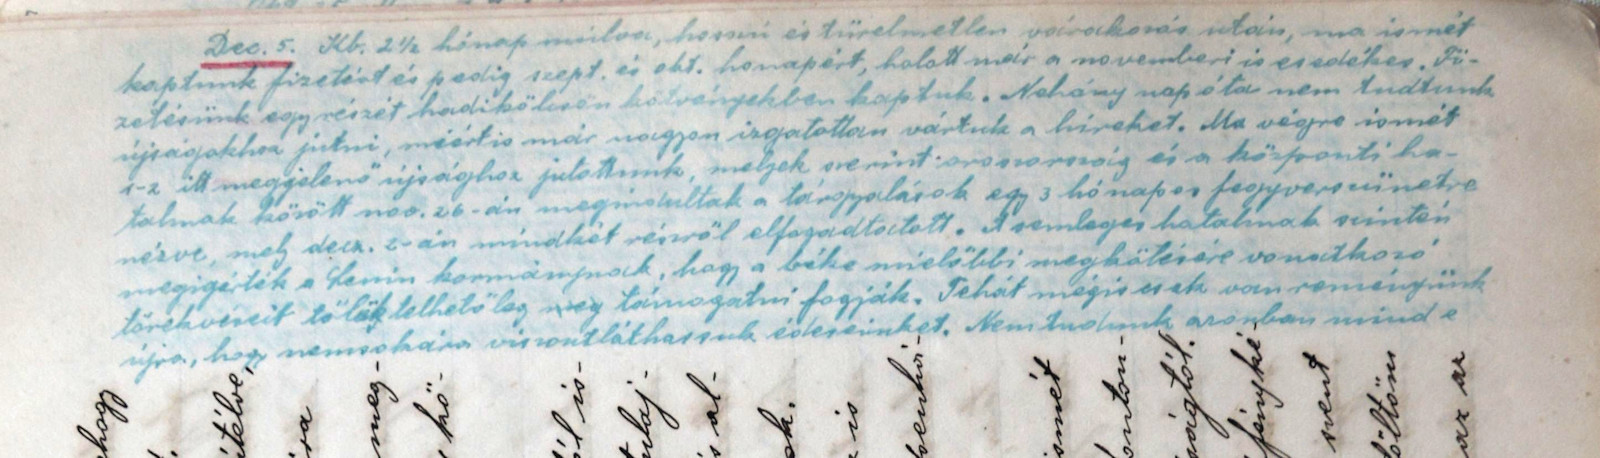 Dec. 5. Kb. 2½ hónap mulva, hosszú és türelmetlen várakozás után, ma ismét
kaptunk fizetést és pedig szept. és okt. honapért, holott már a novemberi is esedékes. Fi-
zetésünk egy részét hadikölcsön kötvényekben kaptuk. Néhány nap óta nem tudtunk
újságokhoz jutni, miért is már nagyon izgatottan vártuk a híreket. Ma végre ismét
1-2 itt megjelenő újsághoz jutottunk, melyek szerint oroszország és a központi ha-
talmak között nov. 26-án megindultak a tárgyalások egy 3 hónapos fegyverszünetre
nézve, mely dec. 2-án mindkét részről elfogadtatott. A semleges hatalmak szintén
megigérték a Lenin kormánynak, hogy a béke mielőbbi megkötésére vonatkozó
törekvéseit tőlük telhetőleg meg támogatni fogják. Tehát mégis csak van reményünk
újra, hogy nemsokára viszontláthassuk édeseinket. Nem tudunk azonban mind e
ehogy
ételve,
ra
meg-
kö-
ól is-
tulaj-
s al-
ok.
is
ismét
onton-
szágtól.
fényké-
szent
töltöm
az az